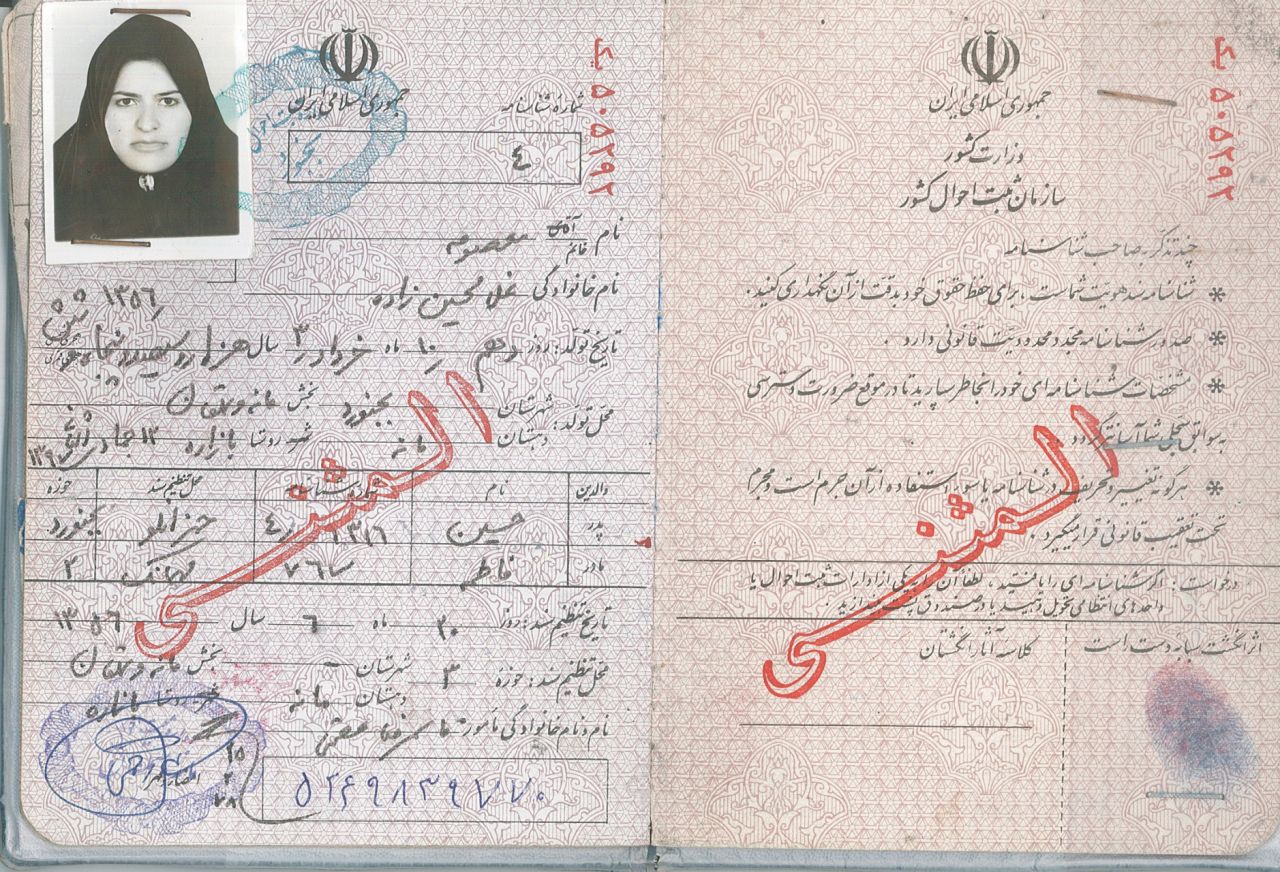 جمهوری اسلامی ایران
وزارت کشور
سازمان ثبت احوال کشور
چند تذکر به صاحب شناسنامه
* شناسنامه سند هویت شماست ، برای حفظ حقوق خود بدقت از آن نگهداری کنید .
* صدور شناسنامه مجدد محدودیت قانونی دارد .
* مشخصات شناسنامه ای خود را بخاطر بسپارید تا در موقع ضرورت دسترسی
به سوابق سجلی شما آسانتر گردد .
* هرگونه تغییر و تحریف در شناسنامه یا سوء استفاده از آن جرم است و مجرم
تحت تعقیب قانونی قرار میگیرد .
درخواست : اگر شناسنامه ای را یافتید ، لطفاً آن را به یکی از ادارات ثبت احوال یا
واحدهای انتظامی تحویل دهید یا در صندوق پست بیندازید .
اثر انگشت سبابه دست راست
کلاسه آثار انگشتان
المثنی
یک ۵۰۵۲۹۲
جمهوری اسلامی ایران
شماره شناسنامه
٤
یک ۵۰۵۲۹۲
نام آقای خانم معصومه
نام خانوادگی غلامحسین زاده
۱۳۵۶
تاریخ تولد : روز دهم ۱۰ ماه خرداد ۳ سال هزار و سیصد و پنجاه و شش
محل تولد : شهرستان بجنورد بخش مانه و سملقان
دهستان مانه شهر روستا
والدین نام شماره شناسنامه محل تنظیم سند حوزه
پدر حسین بجنورد
مادر فاطمه ۲
تاریخ تنظیم سند : روز ۲۰ ماه ۶ سال ۱۳۵۶
محل تنظیم سند : حوزه ۳ شهرستان بخش مانه و سملقان
دهستان مانه شهر روستا
نام و نام خانوادگی مأمور
امضاء و مهر
۵۲۴۹۸۳۹۷۷۰
المثنی